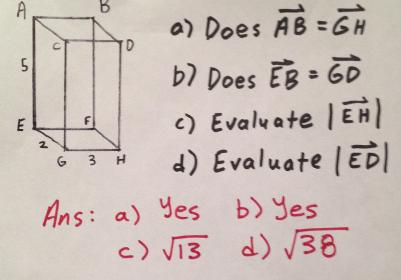 A B
C D
5
E F
2
G 3 H
a) Does AB = GH
b) Does EB = GD
c) Evaluate |EH|
d) Evaluate |ED|
Ans: a) Yes b) Yes
c) √13 d) √38